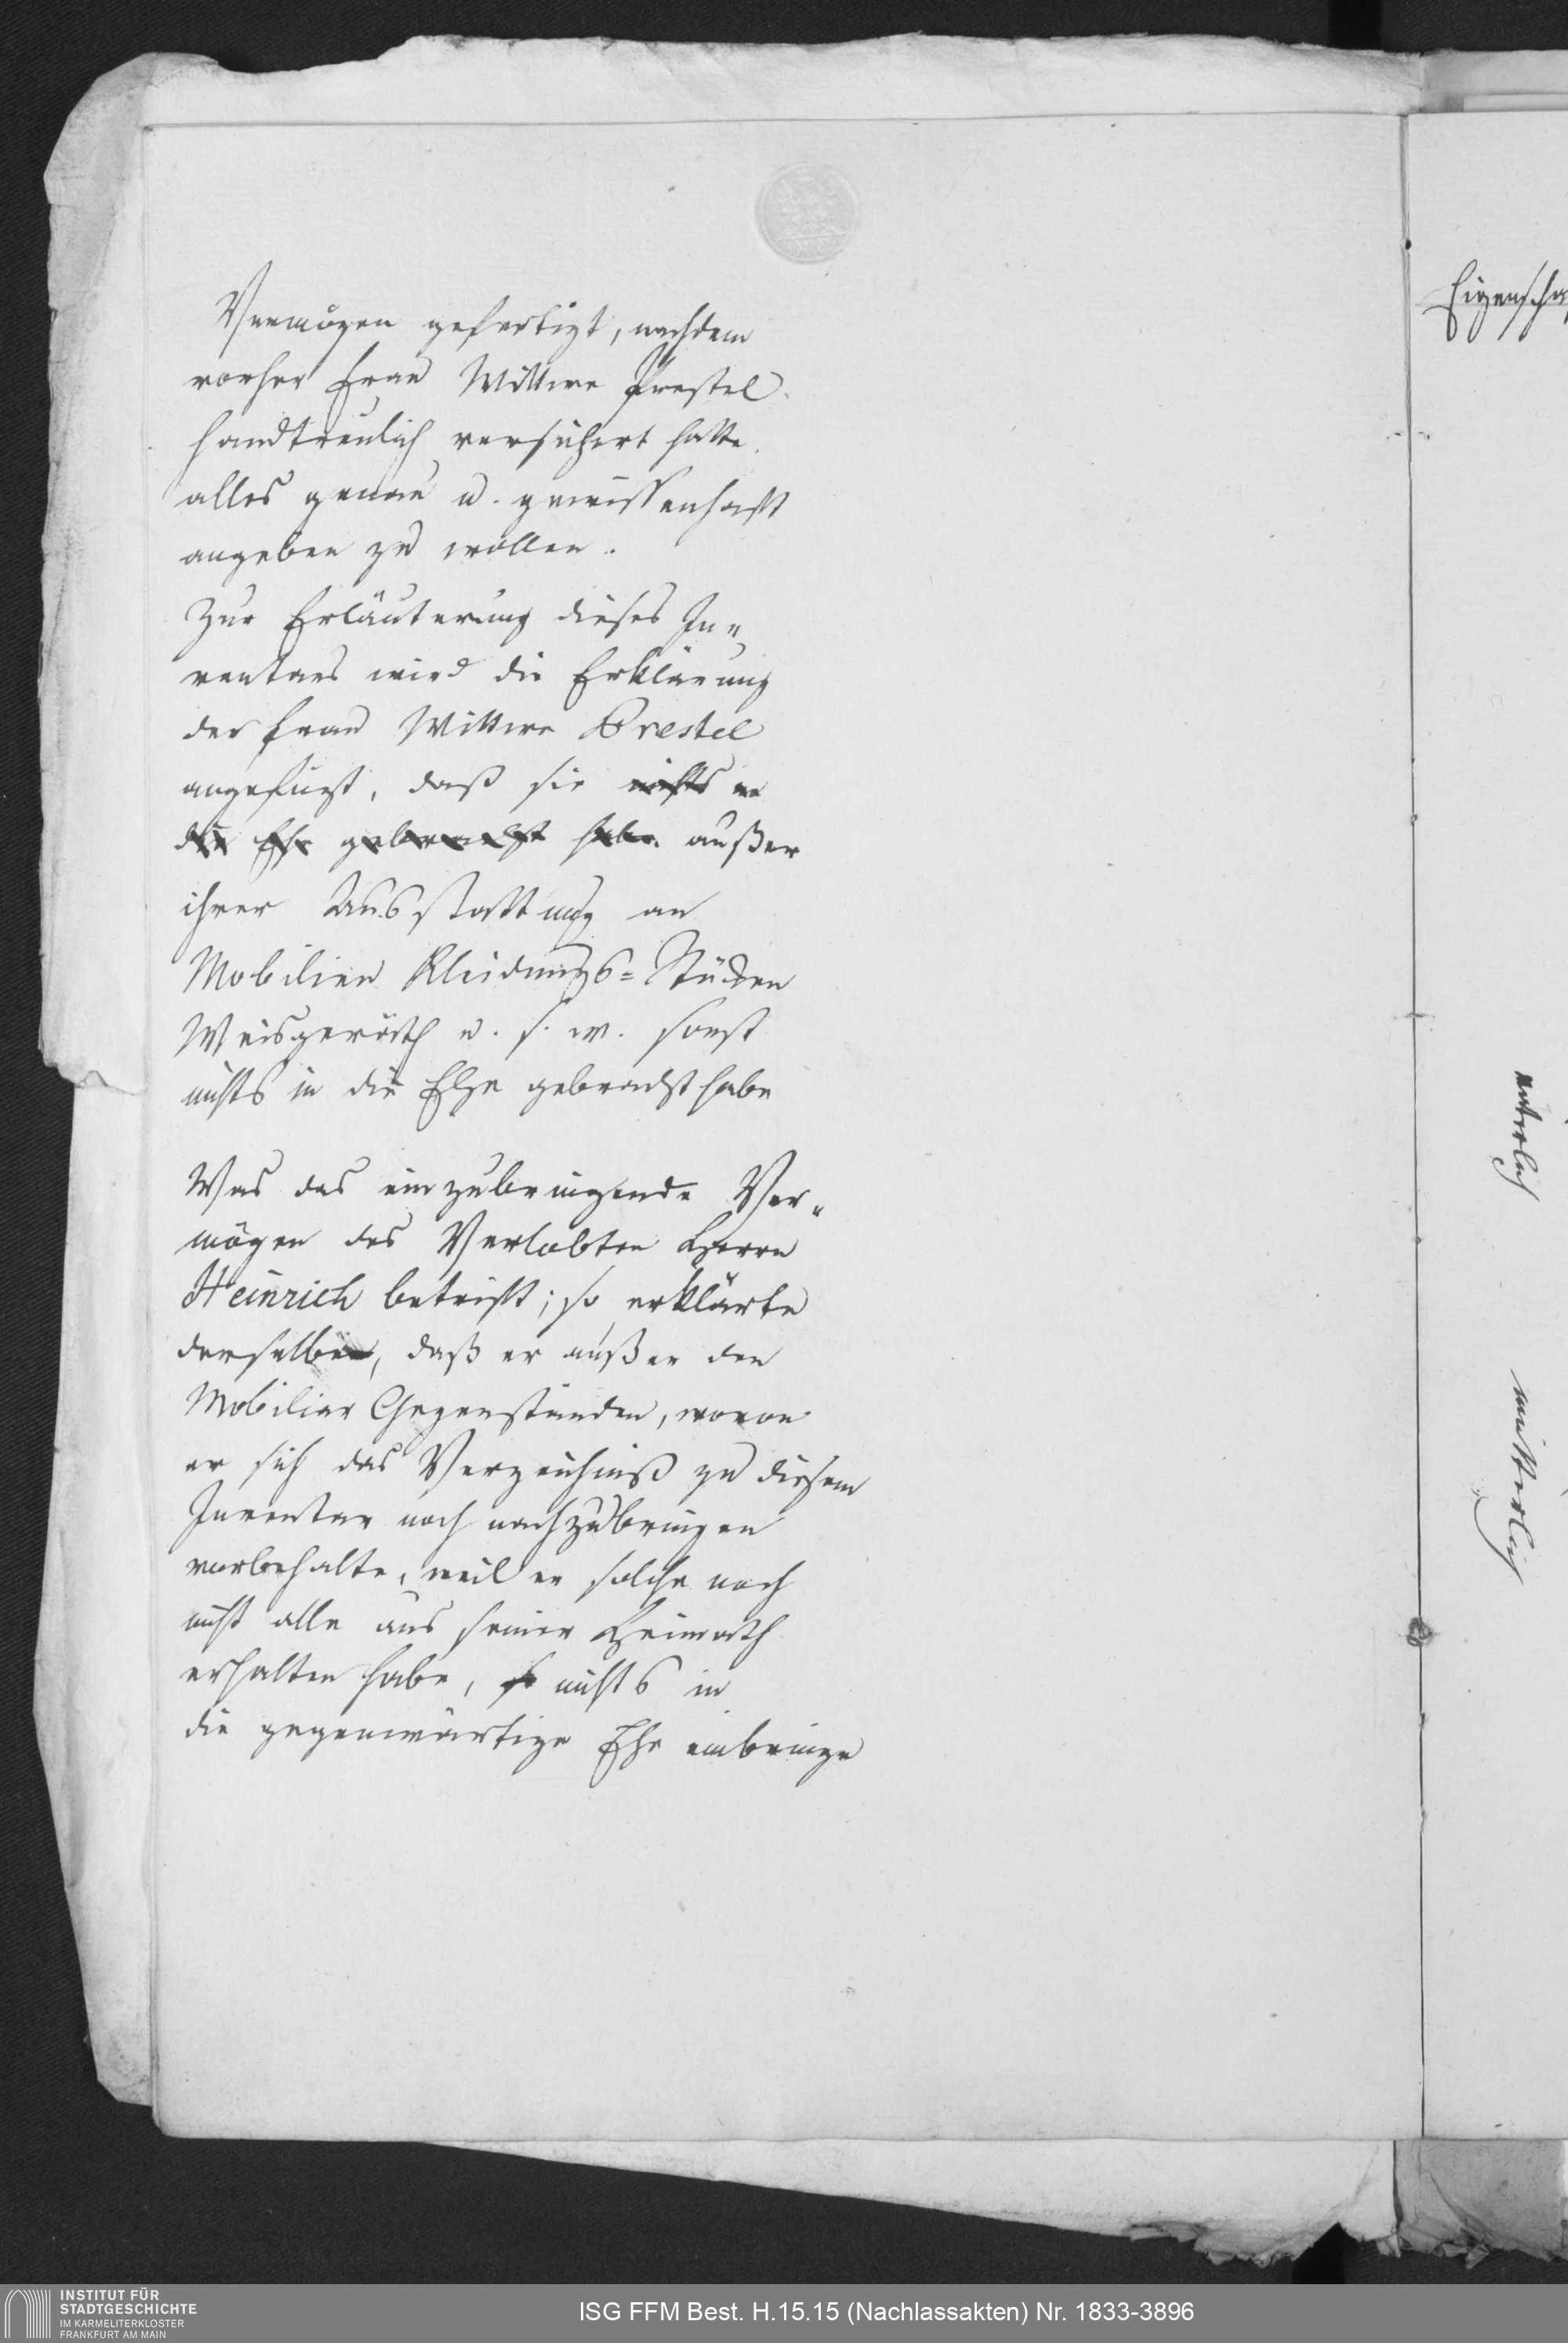 Vermögen gefertigt, nachdem
vorher Frau Wittwe Prestel
handtreulich versichert hatte
alles genau u. gewissenhaft
angeben zu wollen.
Zur Erläuterung dieses In„
ventars wird die Erklärung
der Frau Wittwe Prestel
angefügt, daß sie nichts in
die Ehe gebracht habe außer
ihrer Ausstattung an
Mobilien Kleidungs=Stücken
Weisgeräth u. s. w. sonst
nichts in die Ehe gebracht habe
Was das einzubringende Ver„
mögen des Verlobten Herrn
Heinrich betrifft; so erklärte
derselbe, daß er außer den
Mobiliar Gegenständen, wovon
er sich das Verzeichniß zu diesem
Inventar noch nachzubringen
vorbehalte, weil er solche noch
nicht alle aus seiner Heimath
erhalten habe, so nichts in
die gegenwärtige Ehe einbringe
Eigenscha
mütterlich
INSTITUT FÜR
STADTGESCHICHTE
IM KARMELITERKLOSTER
FRANKFURT AM MAIN
ISG FFM Best. H.15.15 (Nachlassakten) Nr. 1833-3896